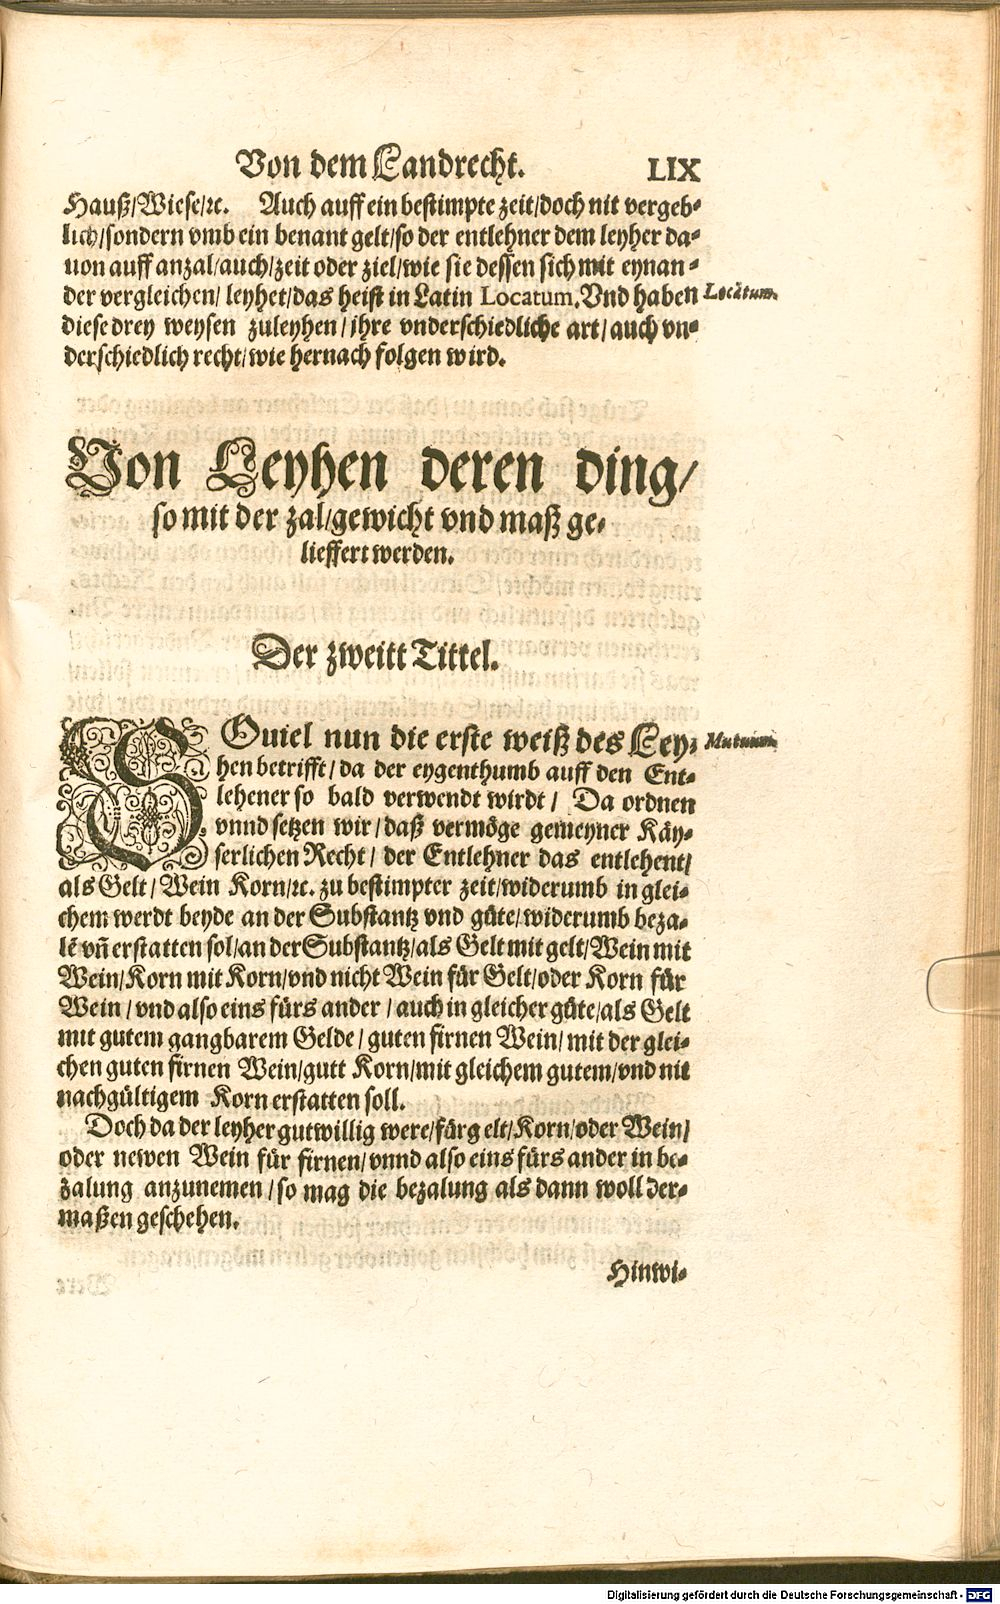 Von dem Landrecht. LIX
Hauß/Wiese/ꝛc. Auch auff ein bestimpte zeit/doch nit vergeb⸗
lich/sondern vmb ein benant gelt/so der entlehner dem leyher da⸗
uon auff anzal/auch/zeit oder ziel/wie sie dessen sich mit eynan⸗
der vergleichen/ leyhet/das heist in Latin Locatum. Vnd haben Locatum.
diese drey weysen zuleyhen/ ihre vnderschiedliche art/ auch vn⸗
derschiedlich recht/wie hernach folgen wird.
Von Leyhen deren ding/
so mit der zal/gewicht vnd maß ge⸗
lieffert werden.
Der zweitt Tittel.
SOuiel nun die erste weiß des Ley⸗ Mutuum.
hen betrifft/ da der eygenthumb auff den Ent⸗
lehener so bald verwendt wirdt/ Da ordnen
vnnd setzen wir/ daß vermöge gemeyner Käy⸗
serlichen Recht/ der Entlehner das entlehent/
als Gelt/ Wein Korn/ꝛc. zu bestimpter zeit/widerumb in glei⸗
chem werdt beyde an der Substantz vnd güte/widerumb beza⸗
lē vñ erstatten sol/an der Substantz/als Gelt mit gelt/Wein mit
Wein/Korn mit Korn/vnd nicht Wein für Gelt/oder Korn für
Wein/ vnd also eins fürs ander/ auch in gleicher güte/als Gelt
mit gutem gangbarem Gelde/ guten firnen Wein/ mit der glei⸗
chen guten firnen Wein/gutt Korn/mit gleichem gutem/vnd nit
nachgültigem Korn erstatten soll.
Doch da der leyher gutwillig were/für gelt/Korn/oder Wein/
oder newen Wein für firnen/vnnd also eins fürs ander in be⸗
zalung anzunemen/so mag die bezalung als dann woll der⸗
maßen geschehen.
Hinwi⸗
Digitalisierung gefördert durch die Deutsche Forschungsgemeinschaft - DFG